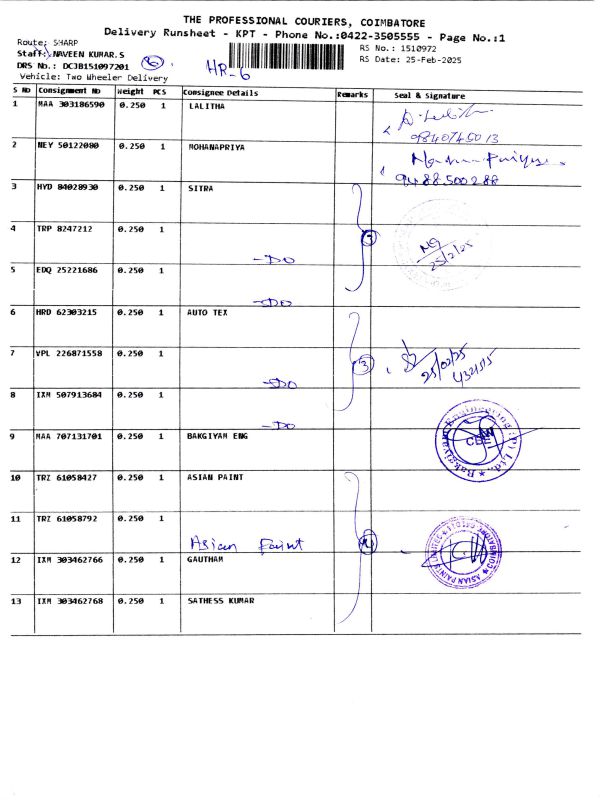 THE PROFESSIONAL COURIERS, COIMBATORE
Delivery Runsheet - KPT - Phone No.:0422-3505555 - Page No.:1
Route: SHARP
RS No.: 1510972
Staff: NAVEEN KUMAR.S
RS Date: 25-Feb-2025
DRS No.: DCJB151097201
HR-6
Vehicle: Two Wheeler Delivery
S No Consignment No Weight PCS Consignee Details Remarks Seal & Signature
1 MAA 303186590 0.250 1 LALITHA
9840745013
2 NEY 50122080 0.250 1 MOHANAPRIYA
9488500288
3 HYD 84028930 0.250 1 SITRA
4 TRP 8247212 0.250 1
25/2/25
-DO
5 EDQ 25221686 0.250 1
-DO
6 HRD 62303215 0.250 1 AUTO TEX
7 VPL 226871558 0.250 1
3
25/02/25
-DO
8 IXM 507913684 0.250 1
-DO
9 MAA 707131701 0.250 1 BAKGIYAM ENG
Bakgiyam Engineering (P) Ltd.,
CBE
10 TRZ 61058427 0.250 1 ASIAN PAINT
11 TRZ 61058792 0.250 1
Asian Paint
12 IXM 303462766 0.250 1 GAUTHAM
13 IXM 303462768 0.250 1 SATHESS KUMAR